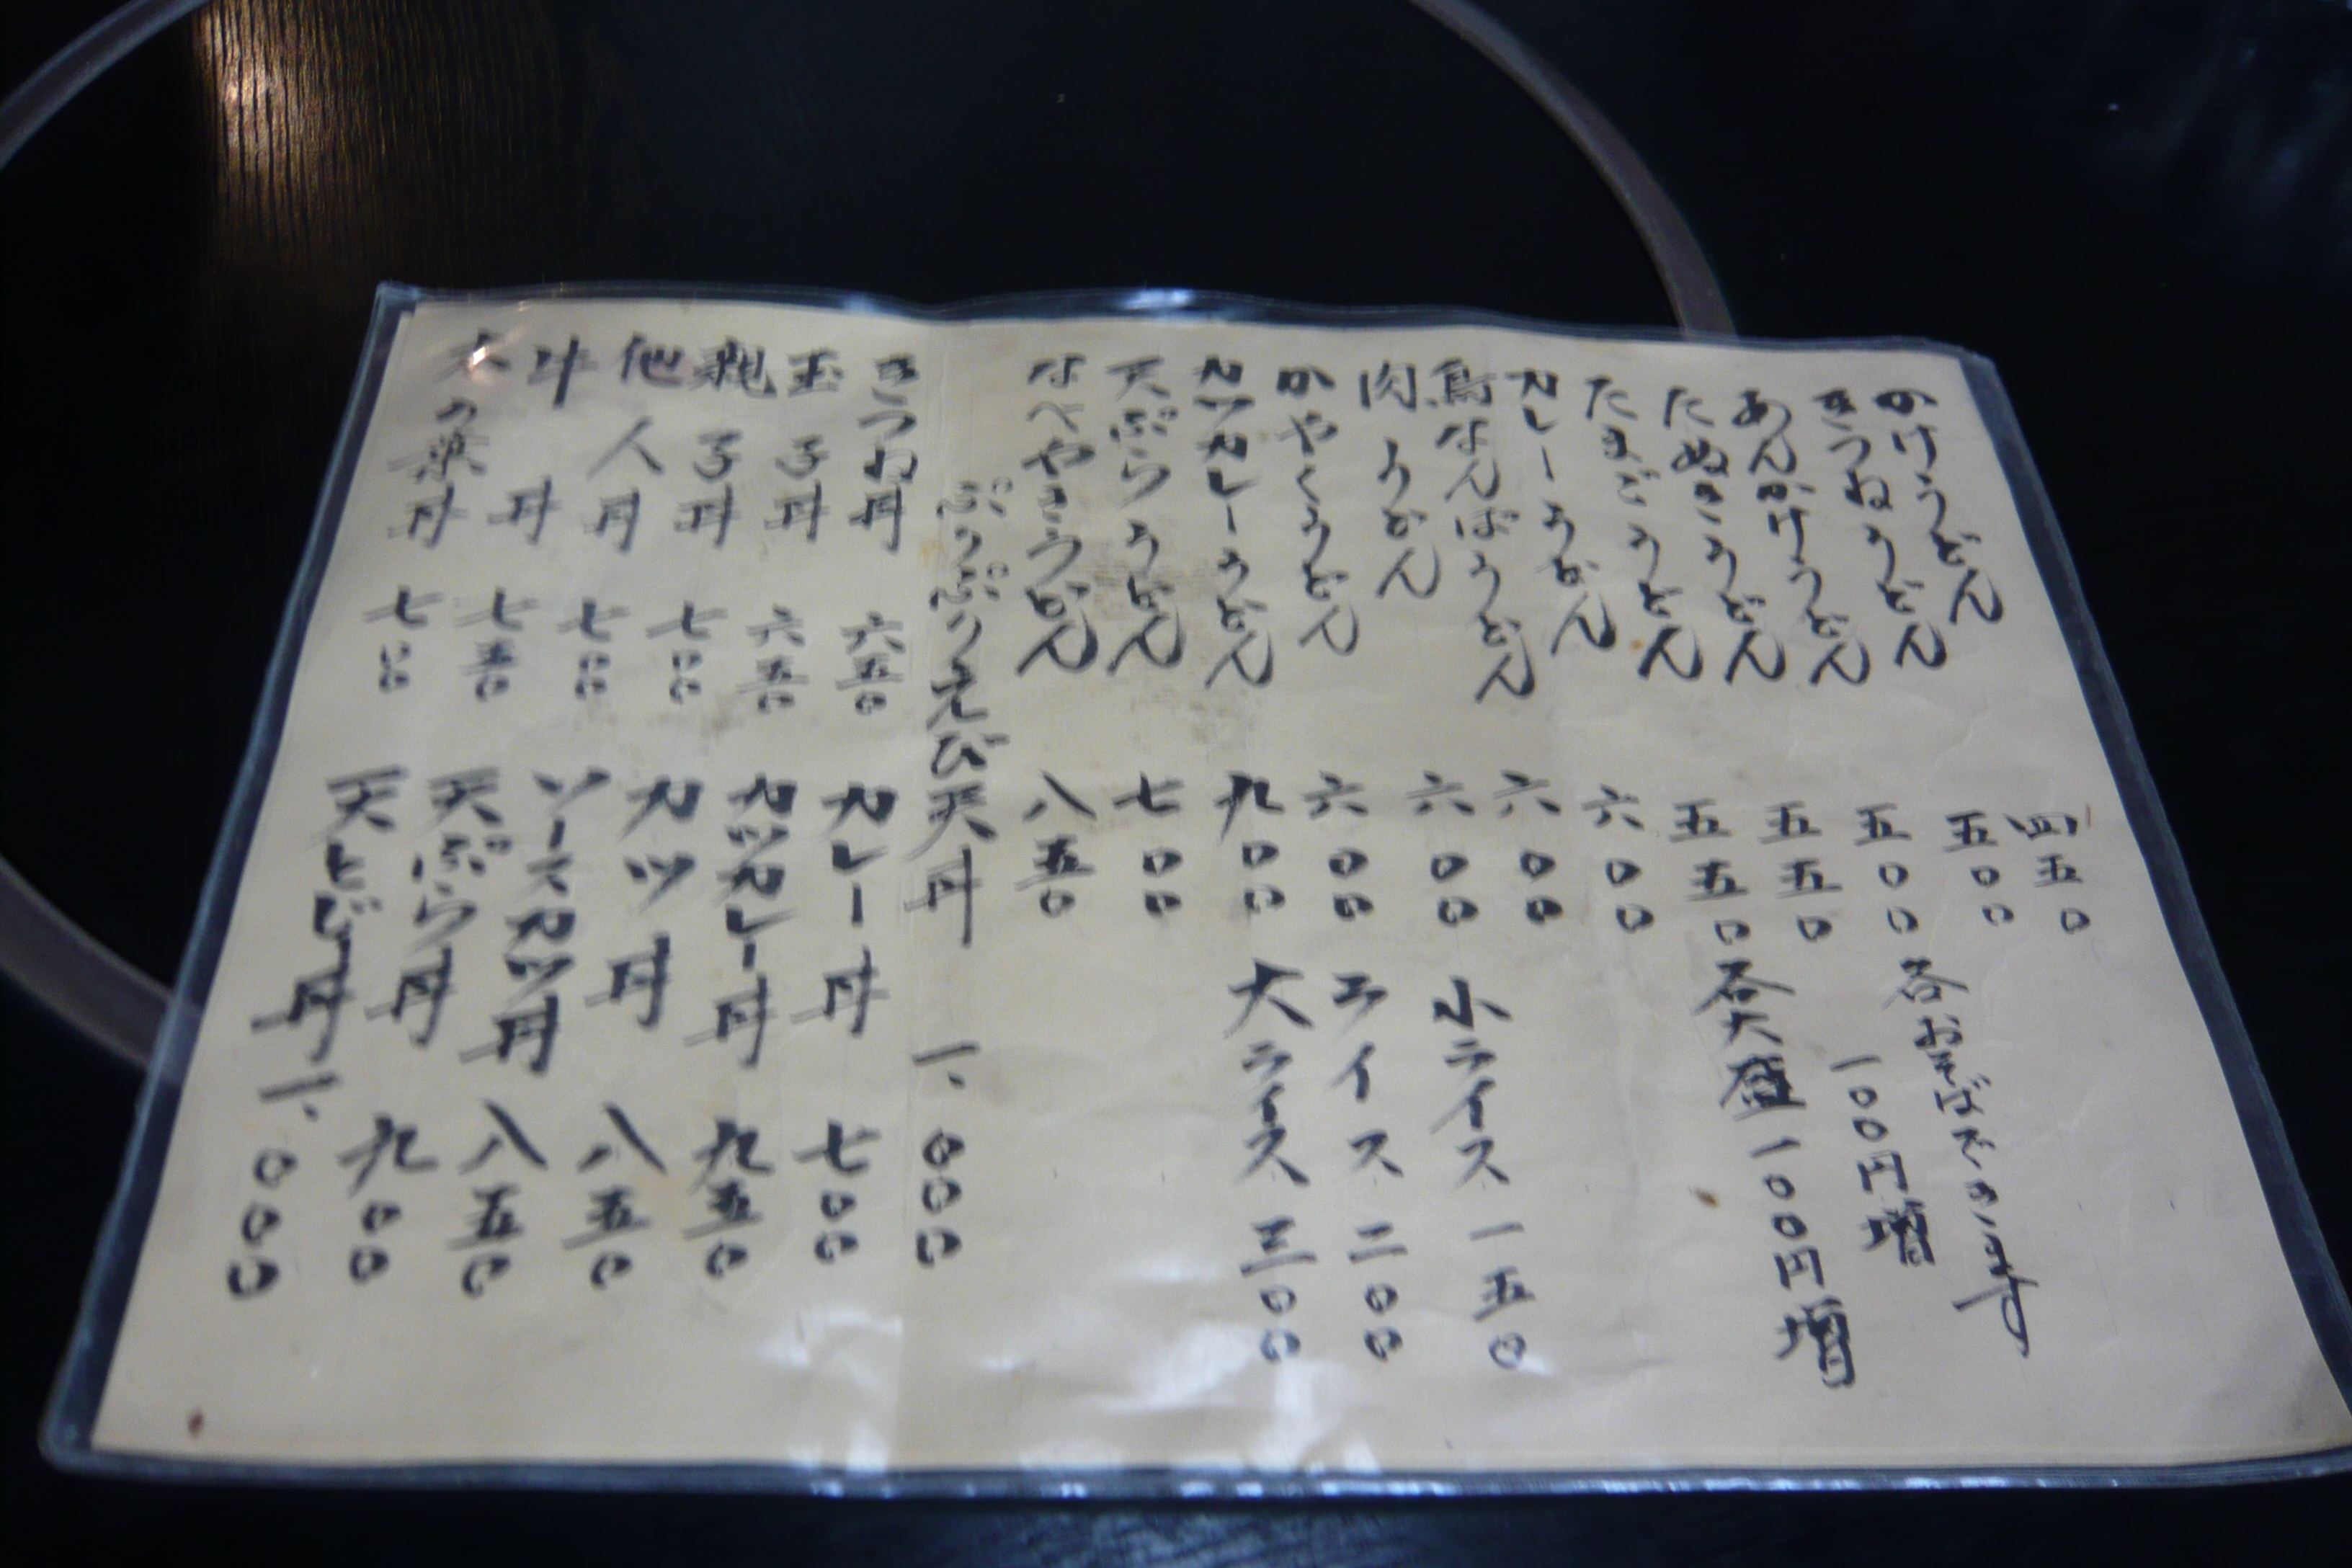 かけうどん 四五〇
きつねうどん 五〇〇
あんかけうどん 五〇〇
たぬきうどん 五五〇
たまごうどん 五五〇
カレーうどん 六〇〇
鳥なんばうどん 六〇〇
肉うどん 六〇〇
かやくうどん 六〇〇
カツカレーうどん 九〇〇
天ぷらうどん 七〇〇
なべやきうどん 八五〇
各おそばできます
一〇〇円増
各大盛一〇〇円増
小ライス 一五〇
ライス 二〇〇
大ライス 三〇〇
ぷりぷりえび天丼 一、〇〇〇
きつね丼 六五〇
玉子丼 六五〇
親子丼 七〇〇
他人丼 七〇〇
牛丼 七五〇
木の葉丼 七〇〇
カレー丼 七〇〇
カツカレー丼 九五〇
カツ丼 八五〇
ソースカツ丼 八五〇
天ぷら丼 九〇〇
天とじ丼 一、〇〇〇